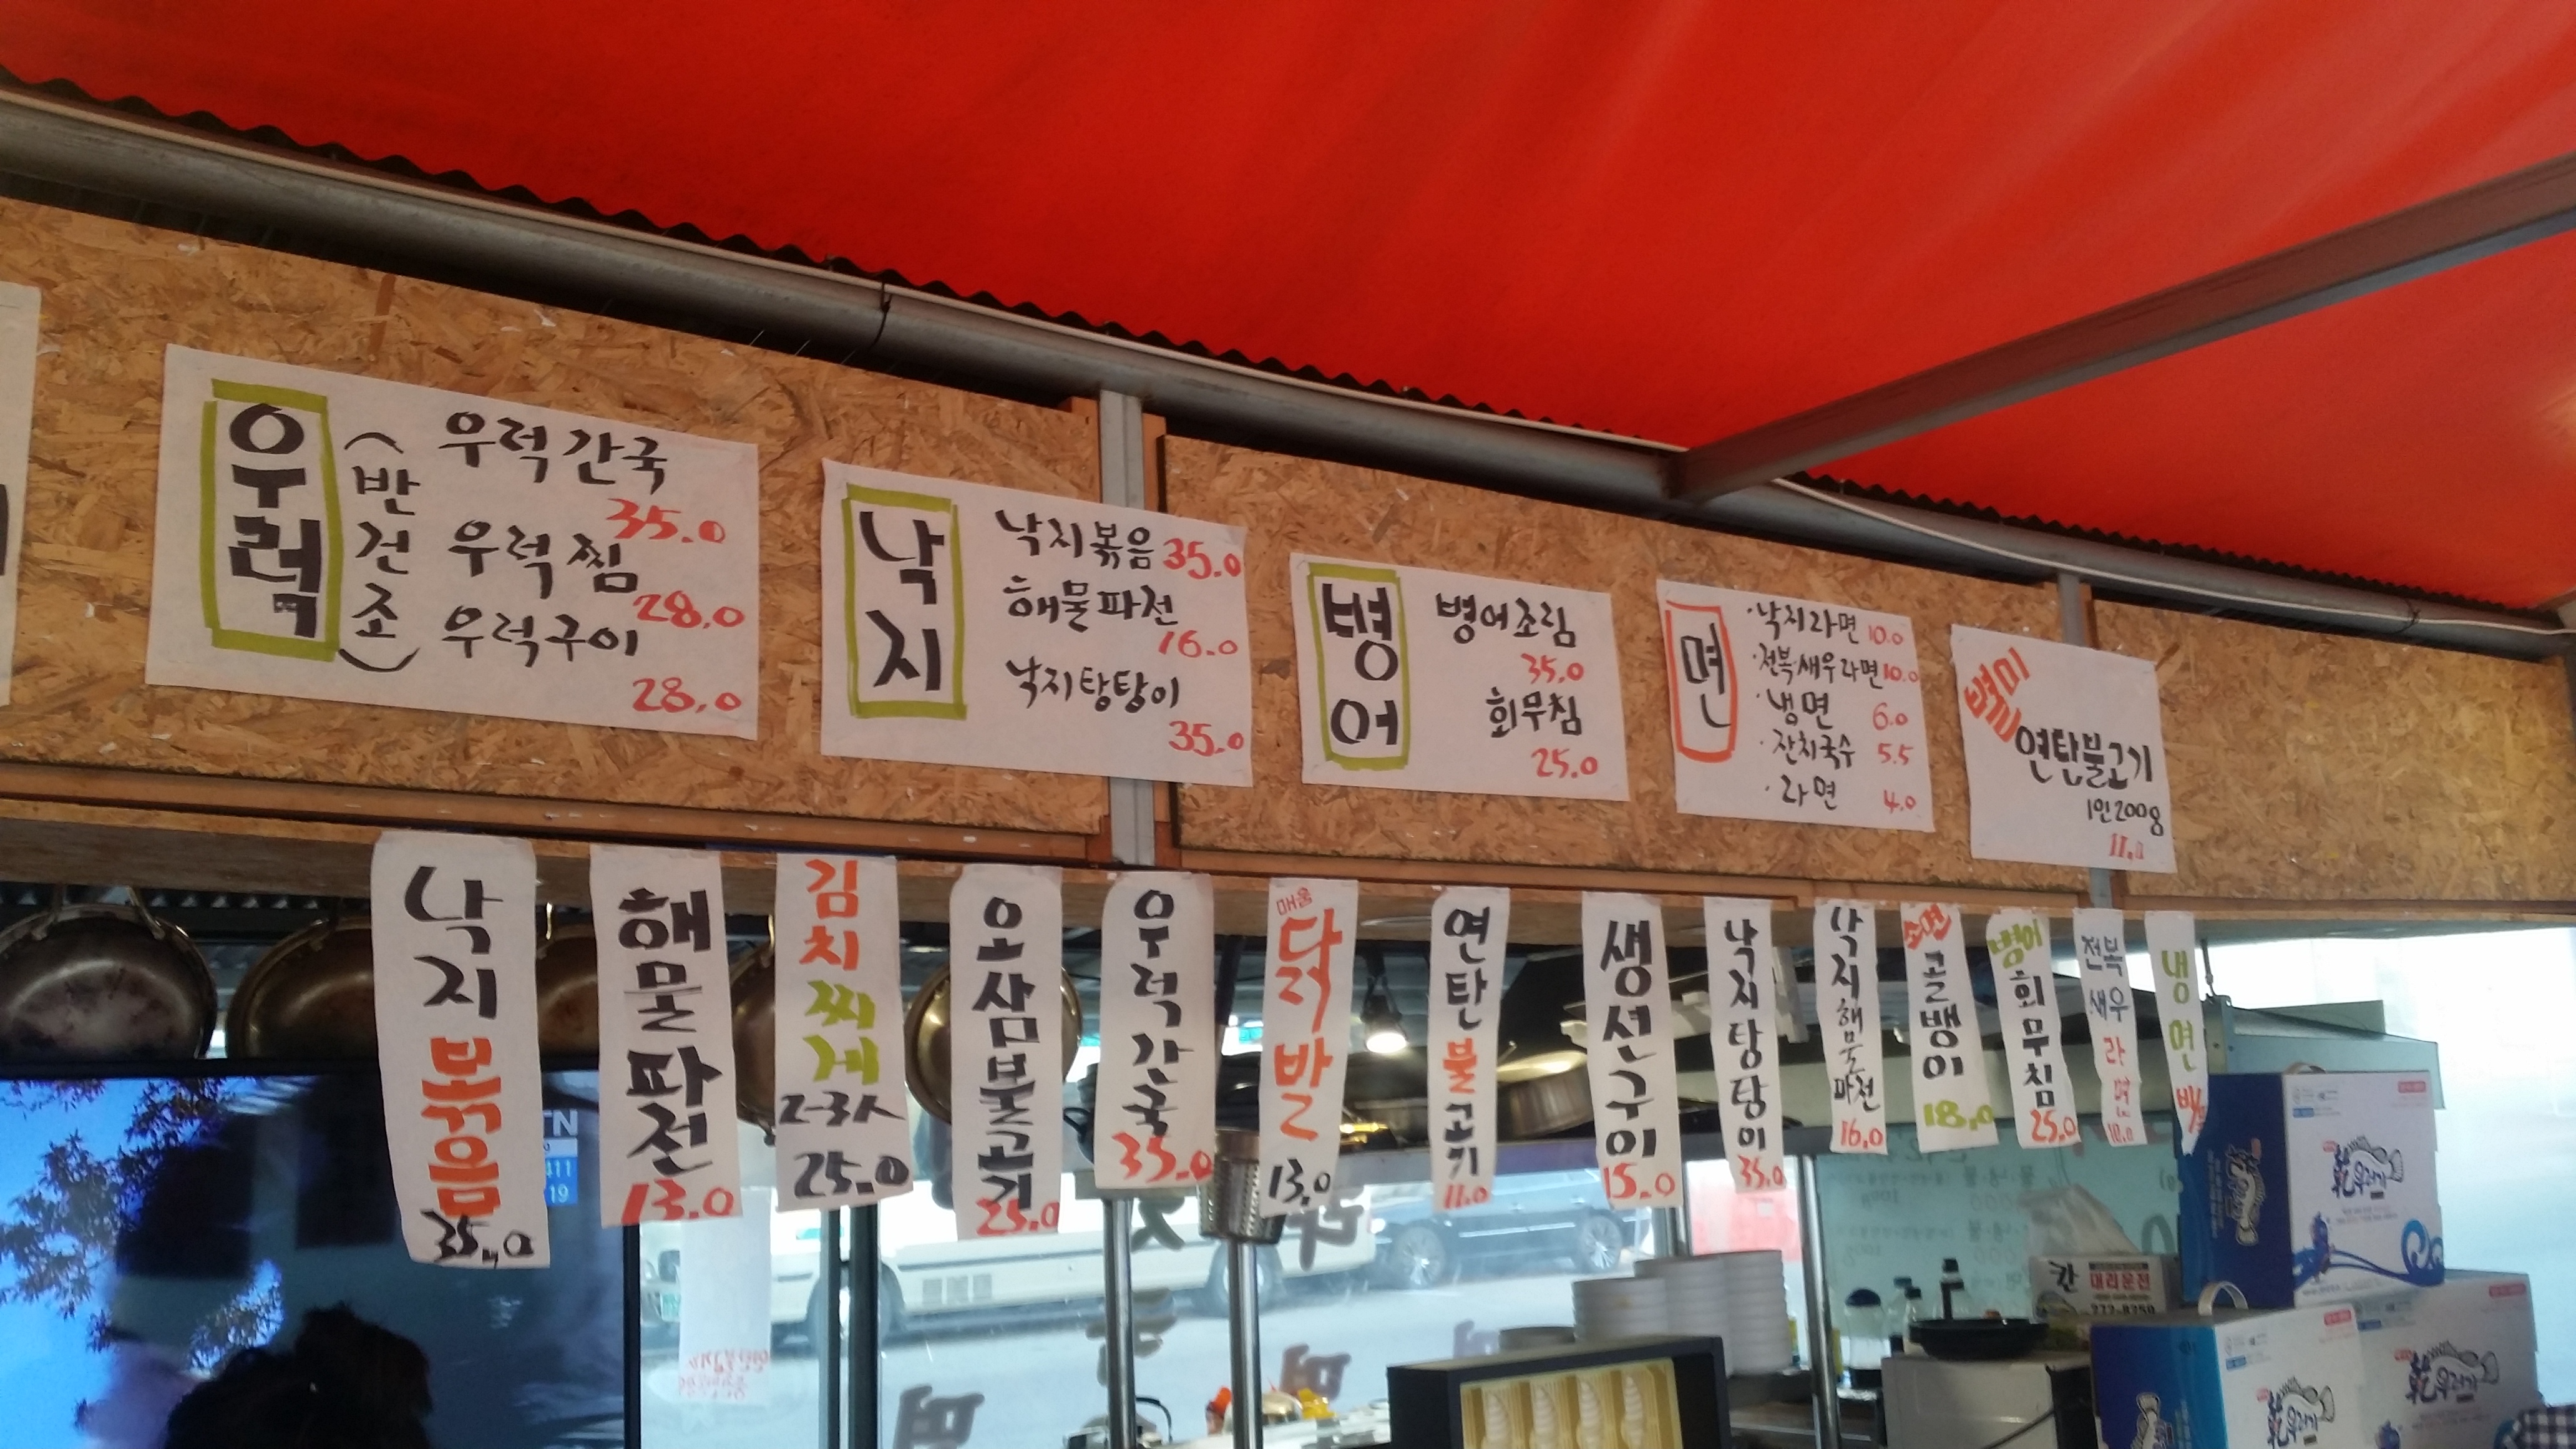 우럭
(반건조)
우럭간국
35.0
우럭찜
28.0
우럭구이
28.0
낙지
낙지볶음 35.0
해물파전
16.0
낙지탕탕이
35.0
병어
병어조림
35.0
회무침
25.0
면
·낙지라면 10.0
·전복새우라면 10.0
·냉면 6.0
·잔치국수 5.5
·라면 4.0
별미
연탄불고기
1인 200g
11.0
낙지볶음
35.0
해물파전
13.0
김치찌게
2-3人
25.0
오삼불고기
25.0
우럭간국
35.0
매움
닭발
13.0
연탄불고기
11.0
생선구이
15.0
낙지탕탕이
35.0
낙지해물파전
16.0
소면
골뱅이
18.0
병어
회무침
25.0
전복새우라면
10.0
냉면
칸 대리운전
222-8250
乾우럭
乾우럭
乾우럭